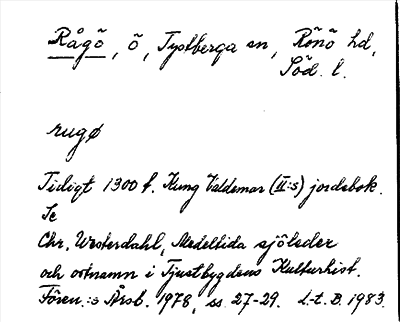 Rågö, ö, Tystberga sn, Rönö hd,
Söd. l.
rugø
Tidigt 1300 t. Kung Valdemar (II:s) jordebok.
Se
Chr. Westerdahl, Medeltida sjöleder
och ortnamn i Tjustbygdens Kulturhist.
Fören.:s Årsb. 1978, ss 27-29. L-t. B. 1983.